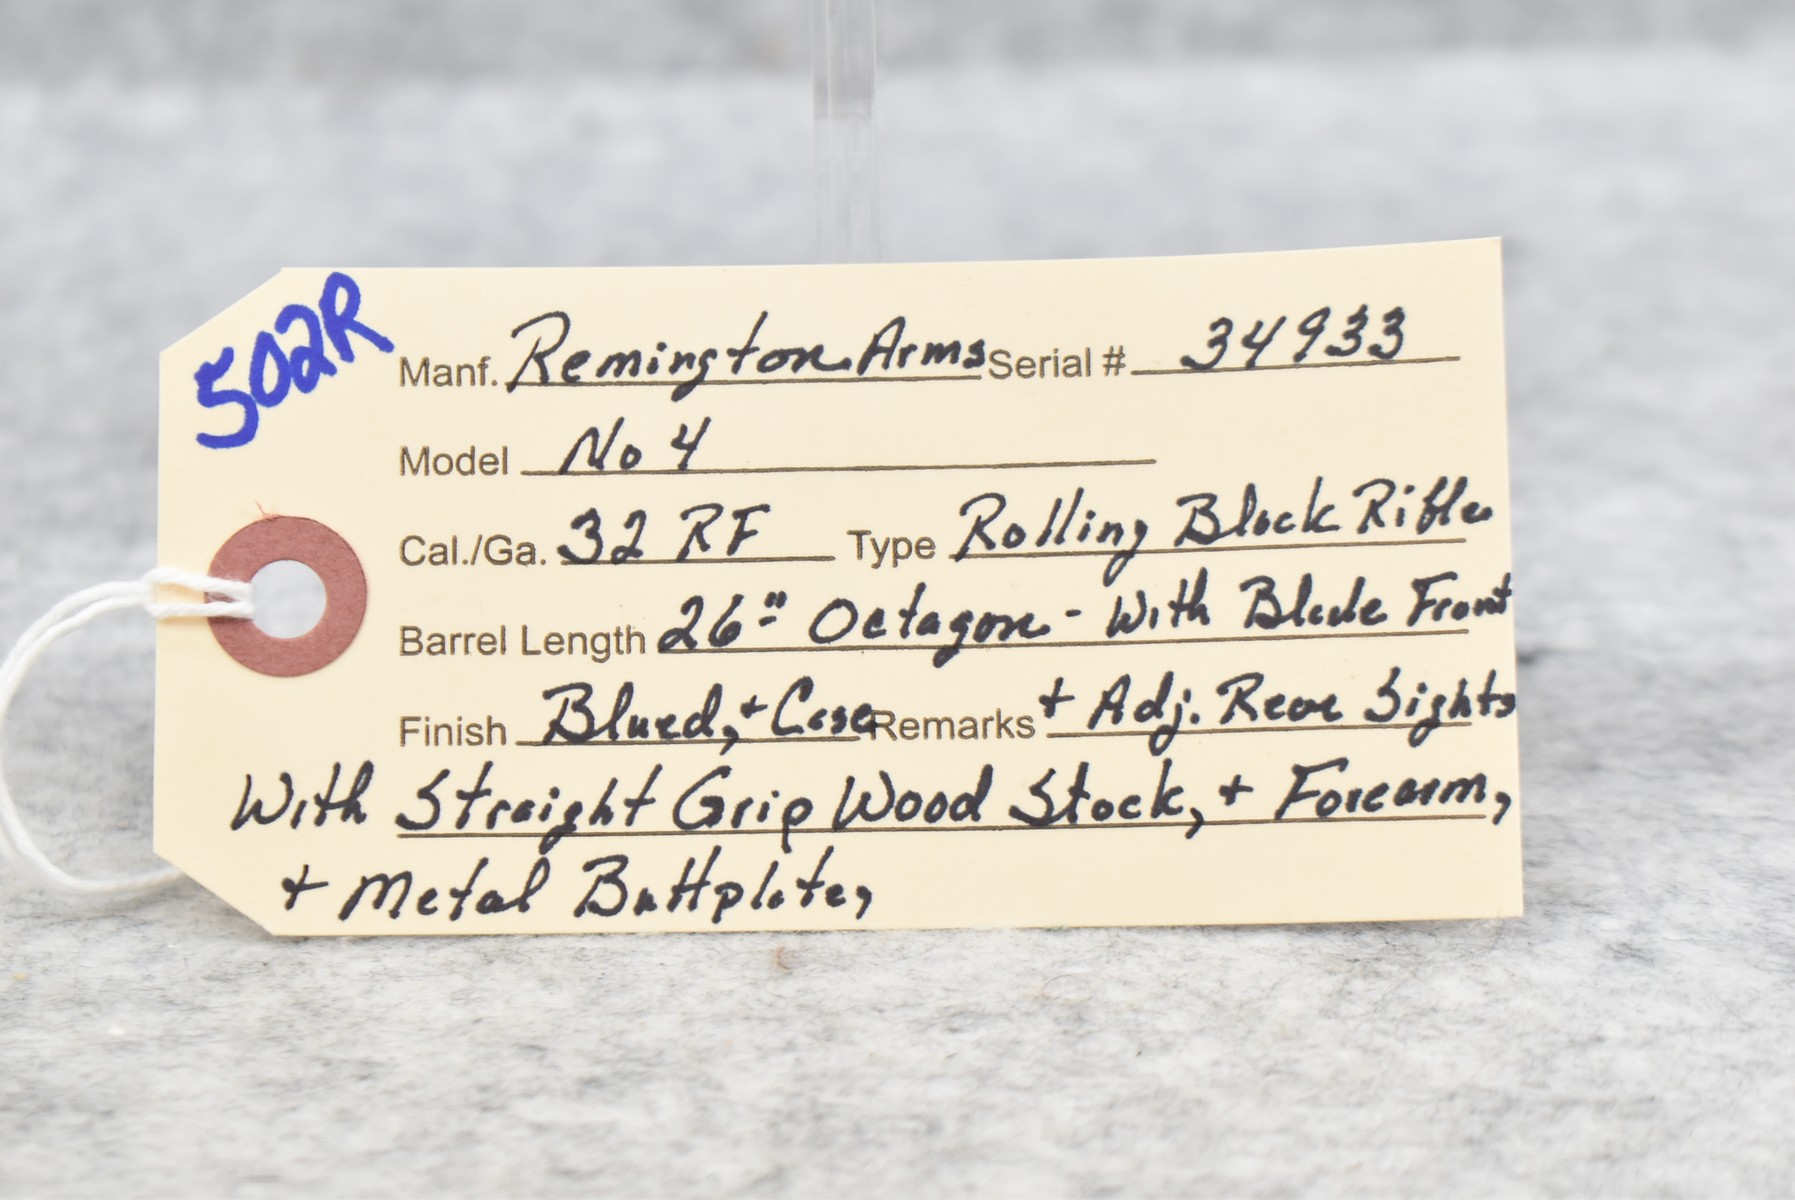 502R
Manf. Remington Arms Serial # 34933
Model No 4
Cal./Ga. 32 RF Type Rolling Block Rifle
Barrel Length 26" Octagon - With Blade Front
Finish Blued, + Case Remarks + Adj. Rear Sights
With Straight Grip Wood Stock, + Forearm,
+ Metal Buttplate,